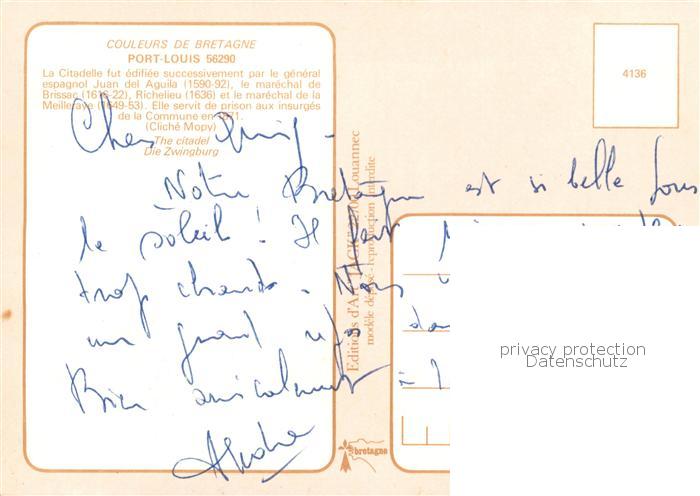 COULEURS DE BRETAGNE
PORT-LOUIS 56290
La Citadelle fut édifiée successivement par le général
espagnol Juan del Aguila (1590-92), le maréchal de
Brissac (1616-22), Richelieu (1636) et le maréchal de la
Meilleraye (1649-53). Elle servit de prison aux insurgés
de la Commune en 1871.
(Cliché Mopy)
The citadel
Die Zwingburg
4136
Editions d'Art JACK 22700 Louannec
modèle déposé - reproduction interdite
Chers
Notre Bretagne est si belle sous
le soleil ! Il fait
trop chaud. Nous
un grand
Bien amicalement à
bretagne
privacy protection
Datenschutz